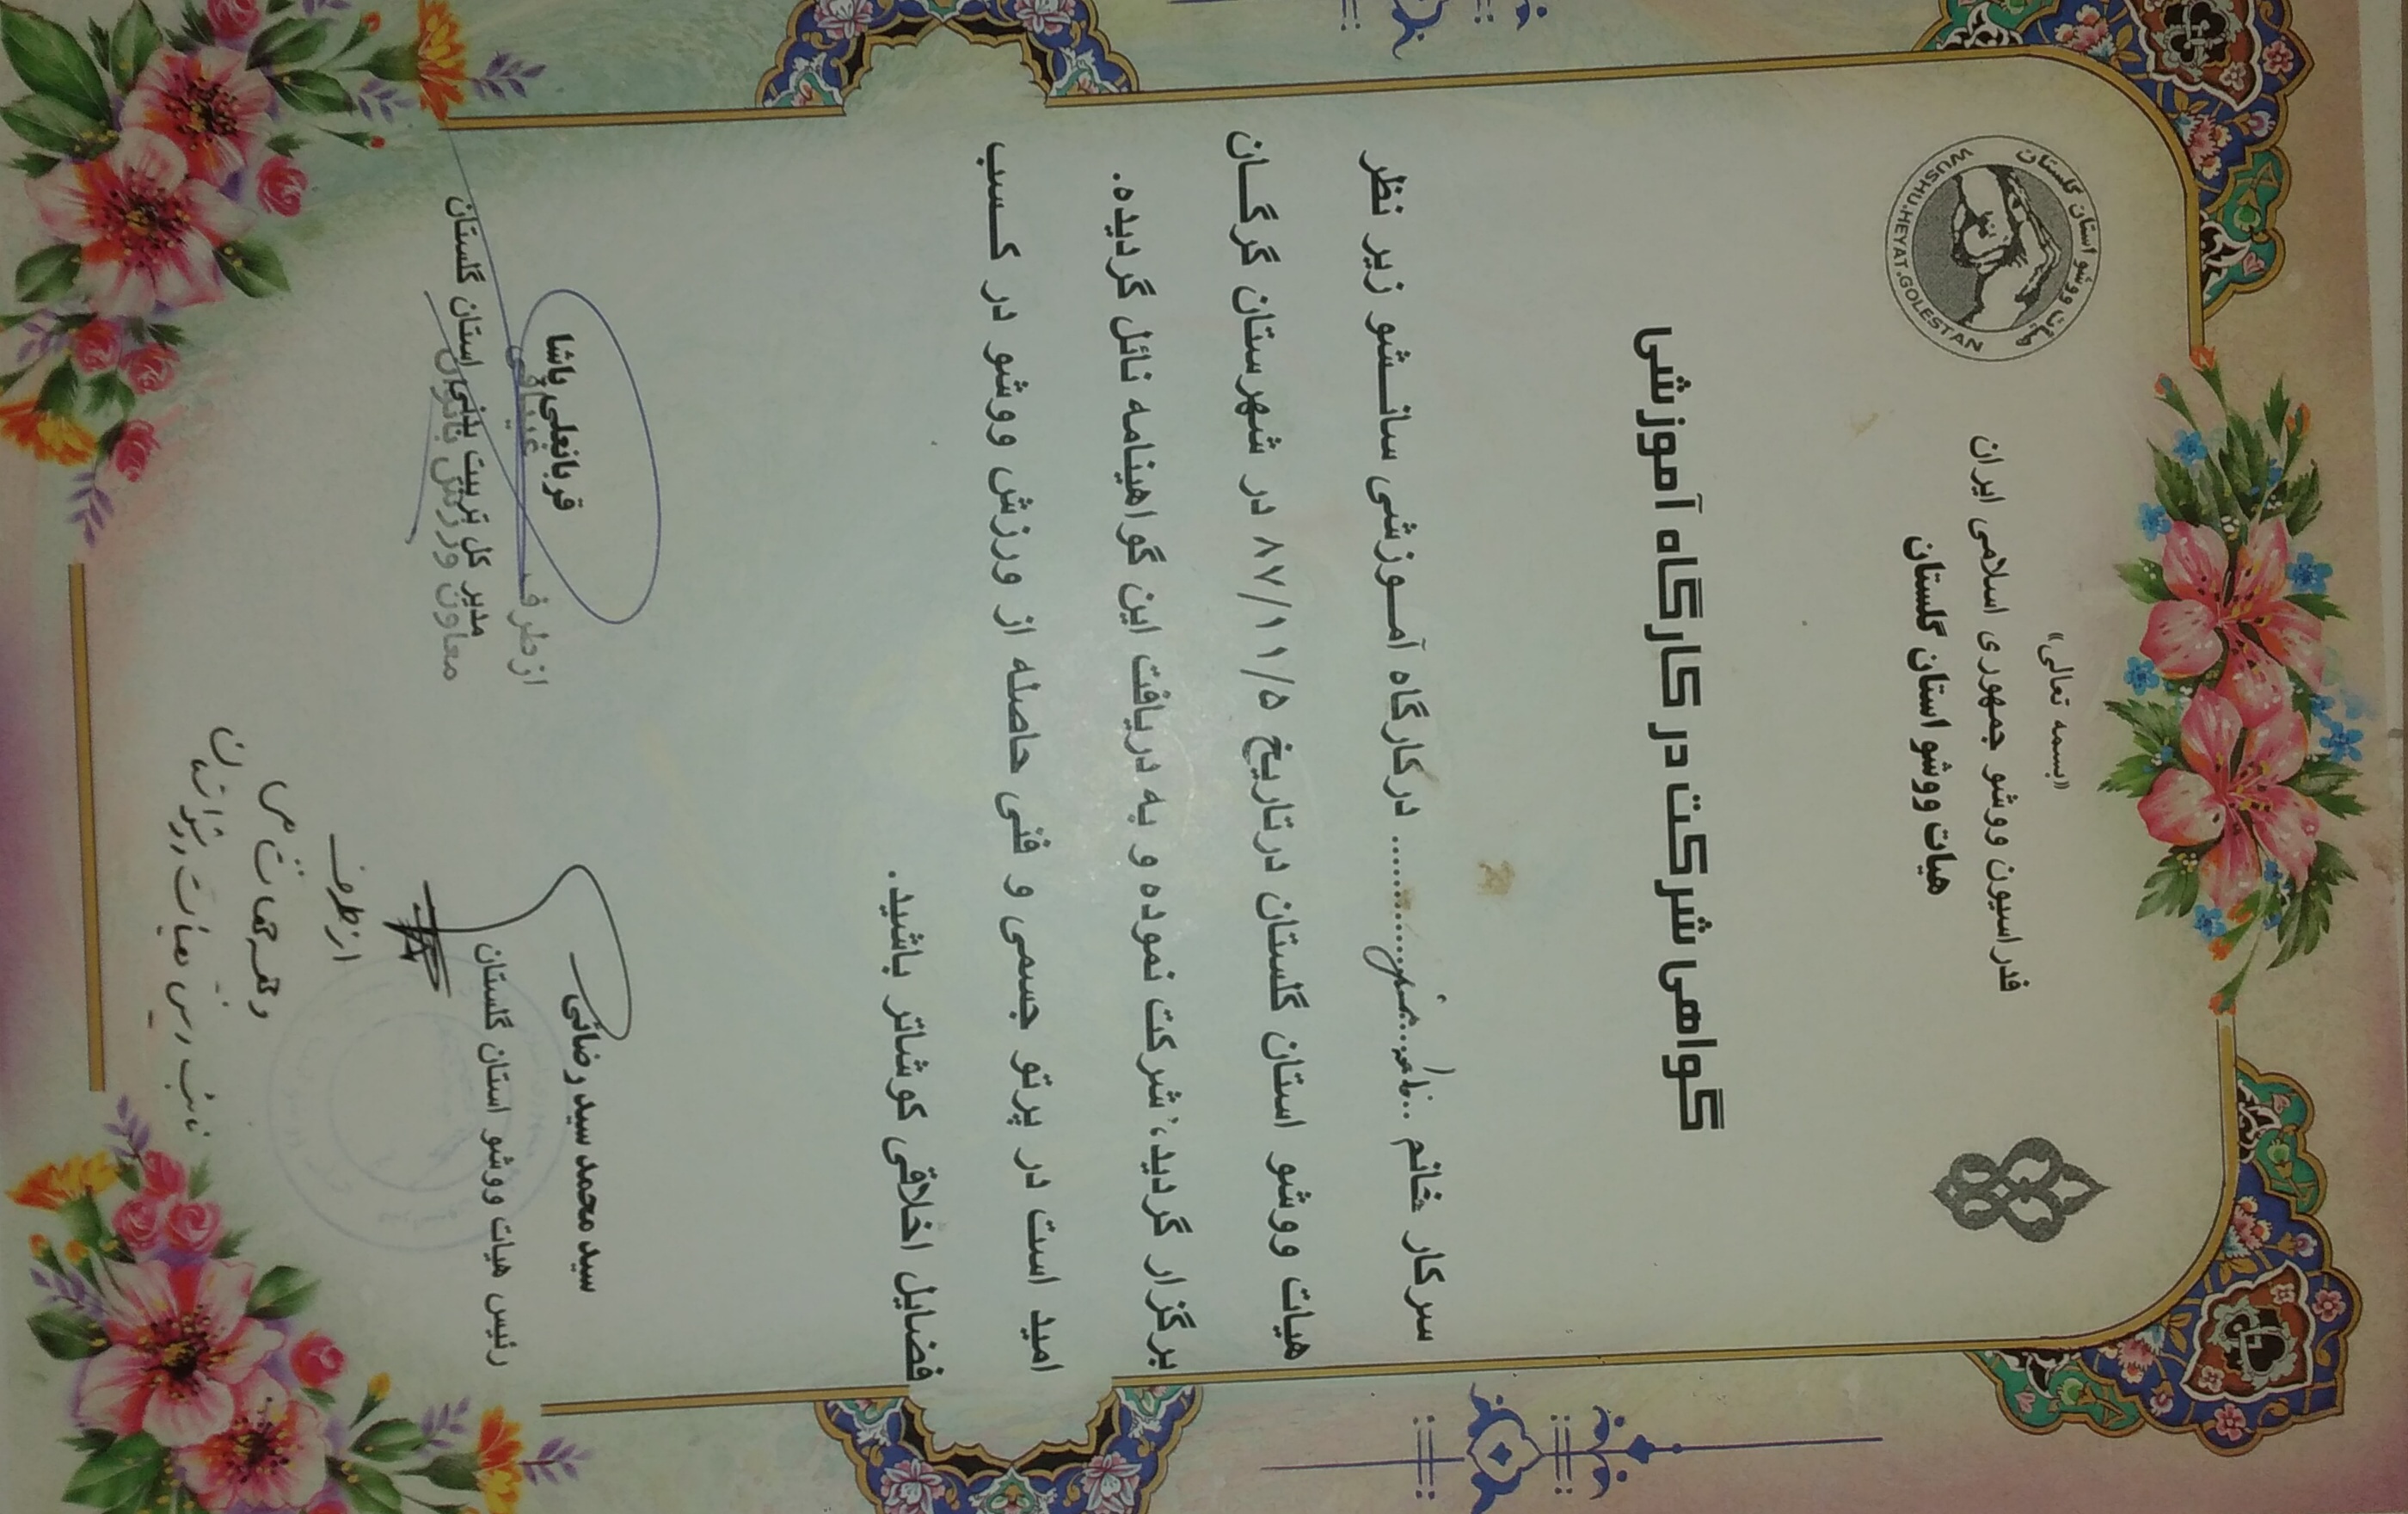 «بسمه تعالی»
فدراسیون ووشو جمهوری اسلامی ایران
هیات ووشو استان گلستان
هیات ووشو استان گلستان
WUSHU.HEYAT.GOLESTAN
گواهی شرکت در کارگاه آموزشی
سرکار خانم ........ درکارگاه آموزشی سانشو زیر نظر
هیات ووشو استان گلستان درتاریخ ۸۷/۱۱/۵ در شهرستان گرگان
برگزار گردید، شرکت نموده و به دریافت این گواهینامه نائل گردیده.
امید است در پرتو جسمی و فنی حاصله از ورزش ووشو در کسب
فضایل اخلاقی کوشاتر باشید.
سید محمد سید رضائی
رئیس هیات ووشو استان گلستان
قربانعلی پاشا
مدیر کل تربیت بدنی استان گلستان
از طرف
معاون ورزش بانوان
از طرف